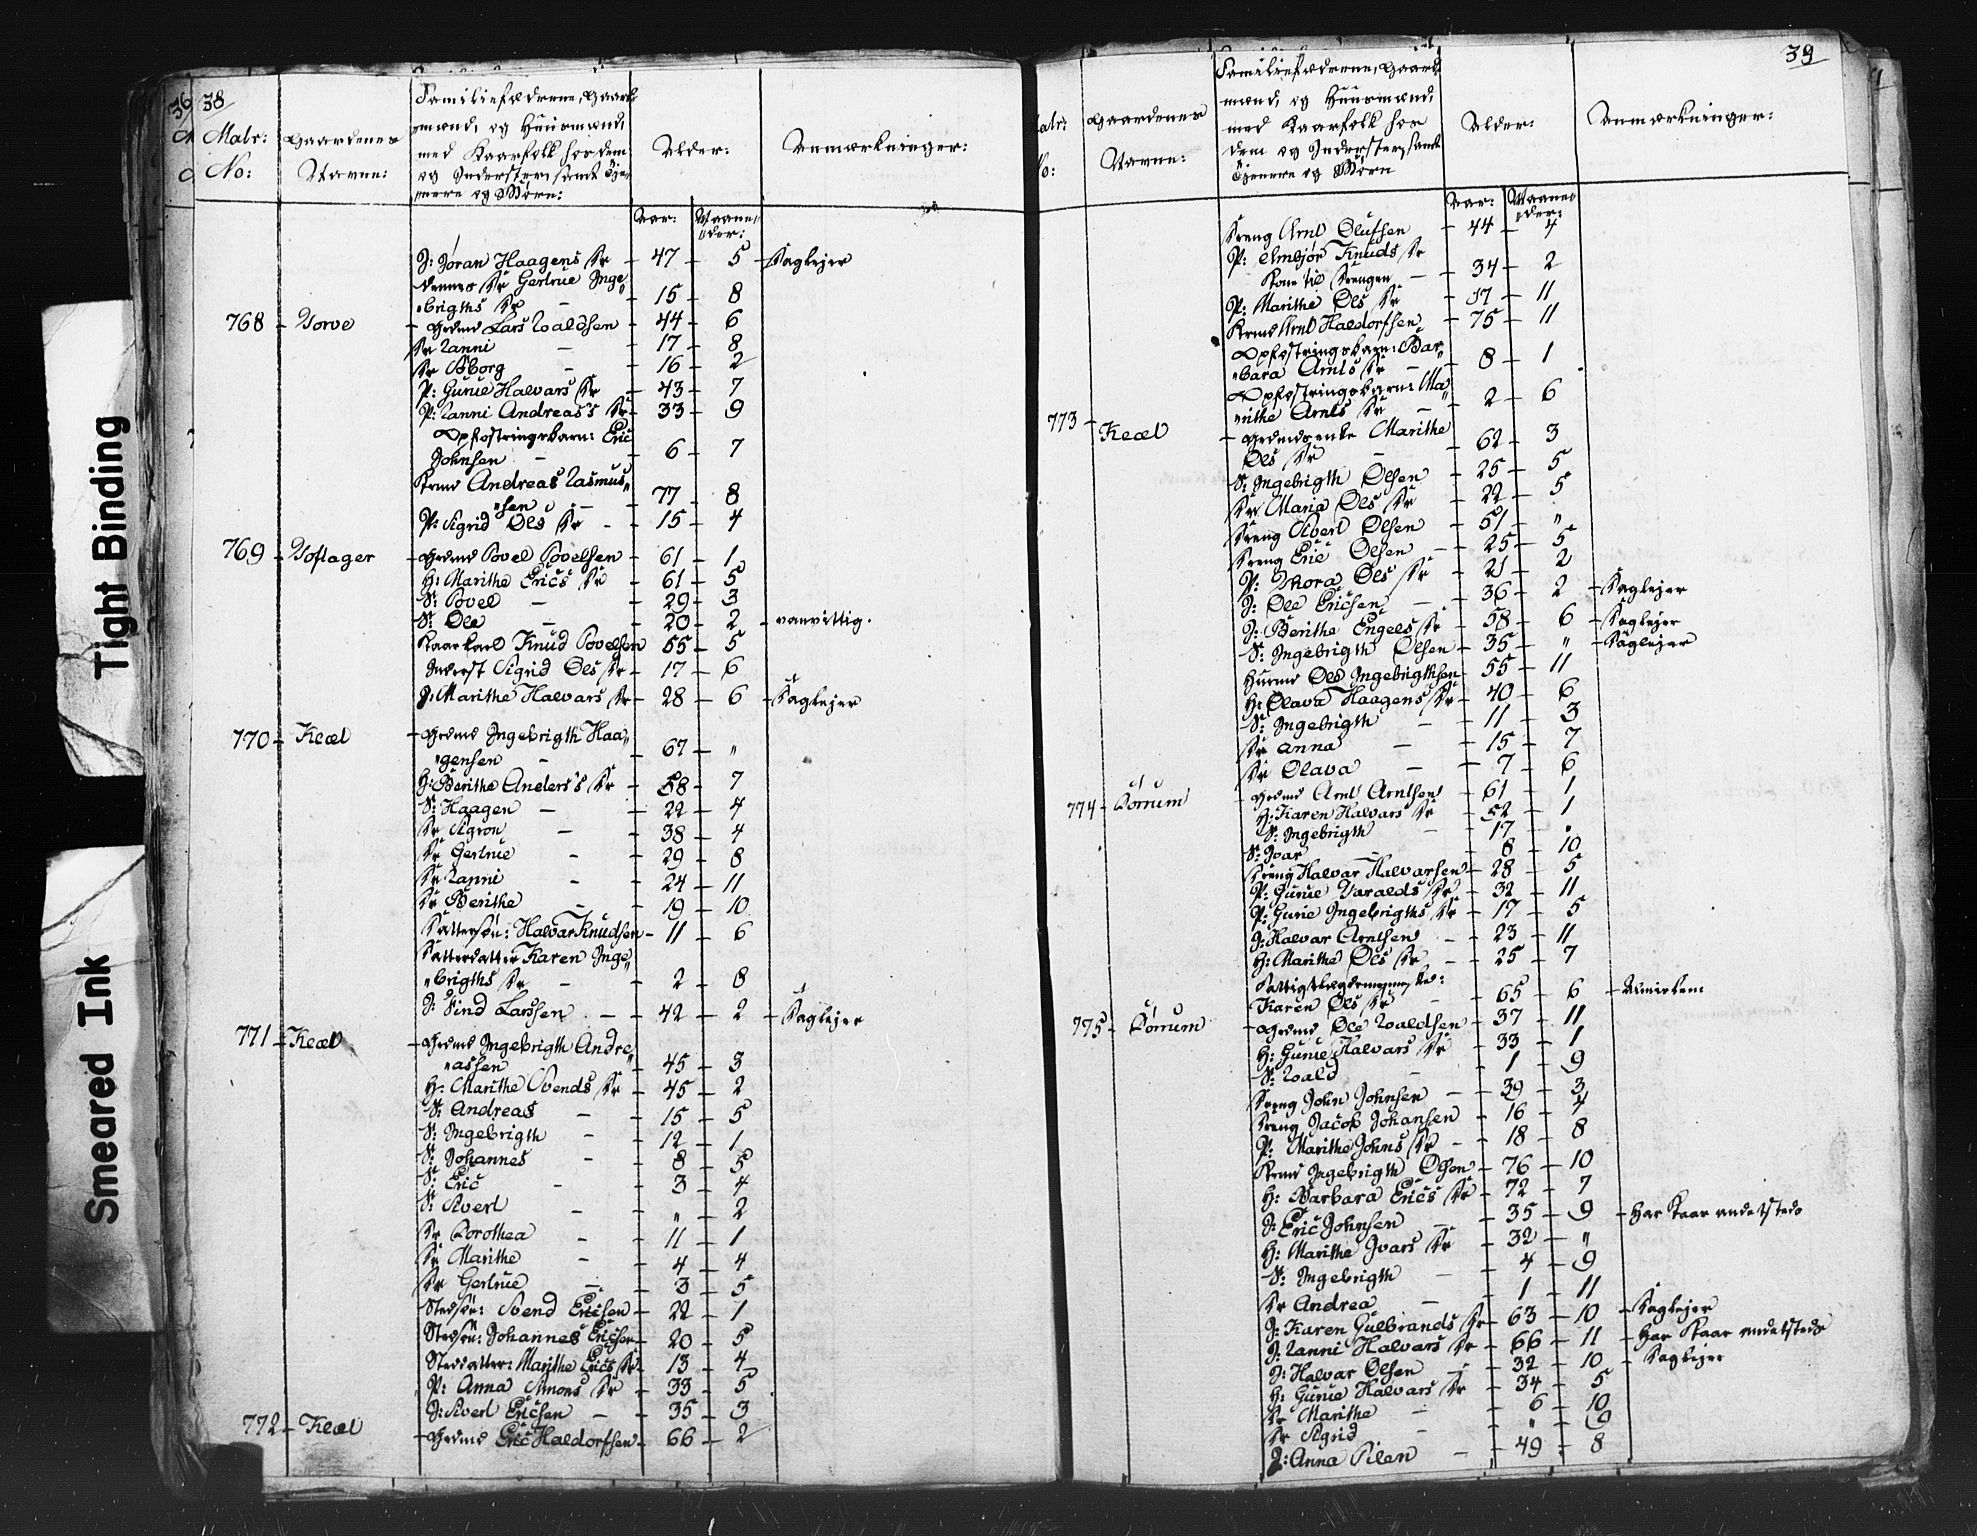 Tight Binding
Smeared Ink
36
38
Matr:
No:
Gaardenes
Navne:
Familiefædrene, Gaard-
mænd, og Huusmænd,
med Kaarfolk hos dem
og Inderster, samt Tje-
nere og Børn:
Alder:
Anmærkninger:
Aar:
Maane-
der:
J: Jøran Haagens Dr 47 5 Daglejer
dennes Dr Gertrue Inge
brigths Dr 15 8
768 Gdmd Lars Roaldsen 44 6
Dr Ranni 17 8
Dr Øborg 16 2
P: Gurue Halvars Dr 43 7
P: Ranni Andreas's Dr 33 9
Opfostringsbarn: Eric
Johnsen 6 7
Krmd Andreas Rasmus
sen 77 8
P: Sigrid Ols Dr 15 4
769 Hoflager Gdmd Povel Povelsen 61 1
H: Marithe Erics Dr 61 5
S: Povel 29 3
S: Ole 20 2 vanvittig.
Kaarkarl Knud Povelsen 55 5
Inderst Sigrid Ols Dr 17 6
J: Marithe Halvars Dr 28 6 Daglejer
770 Kleæl Gdmd Ingebrigth Haa
gensen 67 "
H: Berithe Anders's Dr 58 7
S: Haagen 22 4
Dr Sigron 38 4
Dr Gertrue 29 8
Dr Ranni 24 11
Dr Berithe 19 10
Dattersøn: Halvar Knudsen 11 6
Datterdatter Karen Inge
brigths Dr 2 8
J: Find Larssen 42 2 Daglejer
771 Kleæl Gdmd Ingebrigth Andre
assen 45 3
H: Marithe Svends Dr 45 2
S: Andreas 15 5
S: Ingebrigth 12 1
S: Johannes 8 5
S: Eric 3 4
S: Siverl " 2
Dr Dorothea 11 1
Dr Marithe 4 4
Dr Gertrue 3 5
Stedsøn: Svend Ericsen 22 1
Stedsøn: Johannes Ericsen 20 5
Steddatter: Marithe Erics Dr 13 4
P: Anna Simons Dr 33 5
J: Siverl Ericsen 35 3
772 Kleæl Gdmd Eric Haldorsen 66 2
39
Matr:
No:
Gaardenes
Navne:
Familiefædrene, Gaard
mænd, og Huusmænd,
med Kaarfolk hos
dem og Inderster, samt
Tjenere og Børn
Alder:
Anmærkninger:
Aar:
Maane-
der:
Dreng Arnt Olufsen 44 4
P: Embjør Knuds Dr
Kone til Drengen 34 2
P: Marithe Ols Dr 37 11
Krmd Arnt Haldorsen 75 11
Opfostringsbarn: Bar
bara Arnts Dr 8 1
Opfostringsbarn: Ma
rithe Arnts Dr 2 6
773 Kleæl Gdmdsenke Marithe
Ols Dr 62 3
S: Ingebrigth Olsen 25 5
Dr Maria Ols Dr 22 5
Dreng Siverl Olsen 51 "
Dreng Eric Olsen 25 5
P: Thora Ols Dr 21 2
J: Ole Ericsen 36 2 Daglejer
J: Berithe Engels Dr 58 6 Daglejer
S: Ingebrigth Olsen 35 " Daglejer
Husmd Ole Ingebrigthsen 55 11
H: Olava Haagens Dr 40 6
S: Ingebrigth 11 3
Dr Anna 15 7
Dr Olava 7 6
774 Dørrum Gdmd Arnt Arntsen 61 1
H: Karen Halvars Dr 52 1
S: Ingebrigth 17 "
S: Ivar 8 10
Dreng Halvar Halvarsen 28 5
P: Gurue Haralds Dr 32 11
P: Gurie Ingebrigths Dr 17 5
J: Halvar Arntsen 23 11
H: Marithe Ols Dr 25 7
Karen Ols Dr 65 6 Almislem
775 Dørrum Gdmd Ole Roaldsen 37 11
H: Gurue Halvars Dr 33 1
S: Roald 1 9
Dreng John Johnsen 39 3
Dreng Jacob Johansen 16 4
P: Marithe Johns Dr 18 8
Krmd Ingebrigth Olsen 76 10
H: Barbara Erics Dr 72 7
J: Eric Johnsen 35 9 Har Kaar andetsteds
H: Marithe Ivars Dr 32 "
S: Ingebrigth 4 9
Dr Andrea 1 11
J: Karen Gulbrands Dr 63 10 Daglejer
J: Ranni Halvars Dr 66 11 Har Kaar andetsteds
J: Halvar Olsen 32 10 Daglejer
H: Gurue Halvars Dr 34 5
Dr Marithe 6 10
Dr Sigrid " 9
J: Anna Pilen 49 8